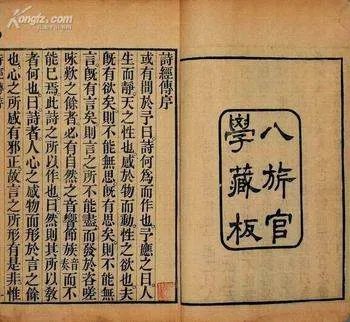 Kongfz.com
八旂官
學藏板
詩經傳序
或有問於予曰詩何爲而作也予應之曰人
生而靜天之性也感於物而動性之欲也夫
既有欲矣則不能無思既有思矣則不能無
言既有言矣則言之所不能盡而發於咨嗟
咏歎之餘者必有自然之音響節族音奏而不
能已焉此詩之所以作也曰然則其所以教
者何也曰詩者人心之感物而形於言之餘
也心之所感有邪正故言之所形有是非惟